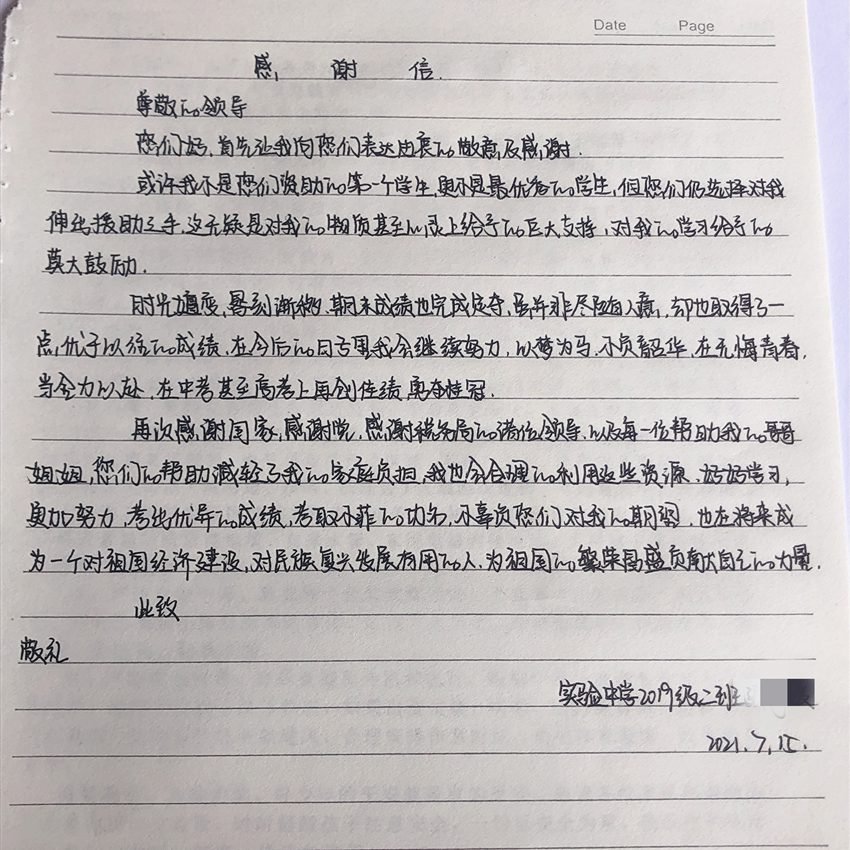 Date Page
感谢信.
尊敬的领导
您们好,首先让我向您们表达由衷的敬意及感谢.
或许我不是您们资助的第一个学生,更不是最优秀的学生,但您们仍选择对我
伸出援助之手,这无疑是对我的物质甚至心灵上给予的巨大支持,对我的学习给予的
莫大鼓励.
时光遛度,晷刻渐移,期末成绩也完成定夺,虽并非尽随人意,却也取得了一
点优于以往的成绩,在今后的日子里我会继续努力,以梦为马,不负韶华,在无悔青春,
当全力以赴,在中考甚至高考上再创佳绩,勇夺桂冠.
再次感谢国家,感谢党,感谢税务局的诸位领导,以及每一位帮助我的哥哥
姐姐,您们的帮助减轻了我的家庭负担,我也会合理的利用这些资源,好好学习,
更加努力,考出优异的成绩,考取不菲的功名,不辜负您们对我的期望,也在将来成
为一个对祖国经济建设,对民族复兴发展有用的人,为祖国的繁荣昌盛贡献自己的力量.
此致
敬礼
实验中学2019级二班
2021.7.15.